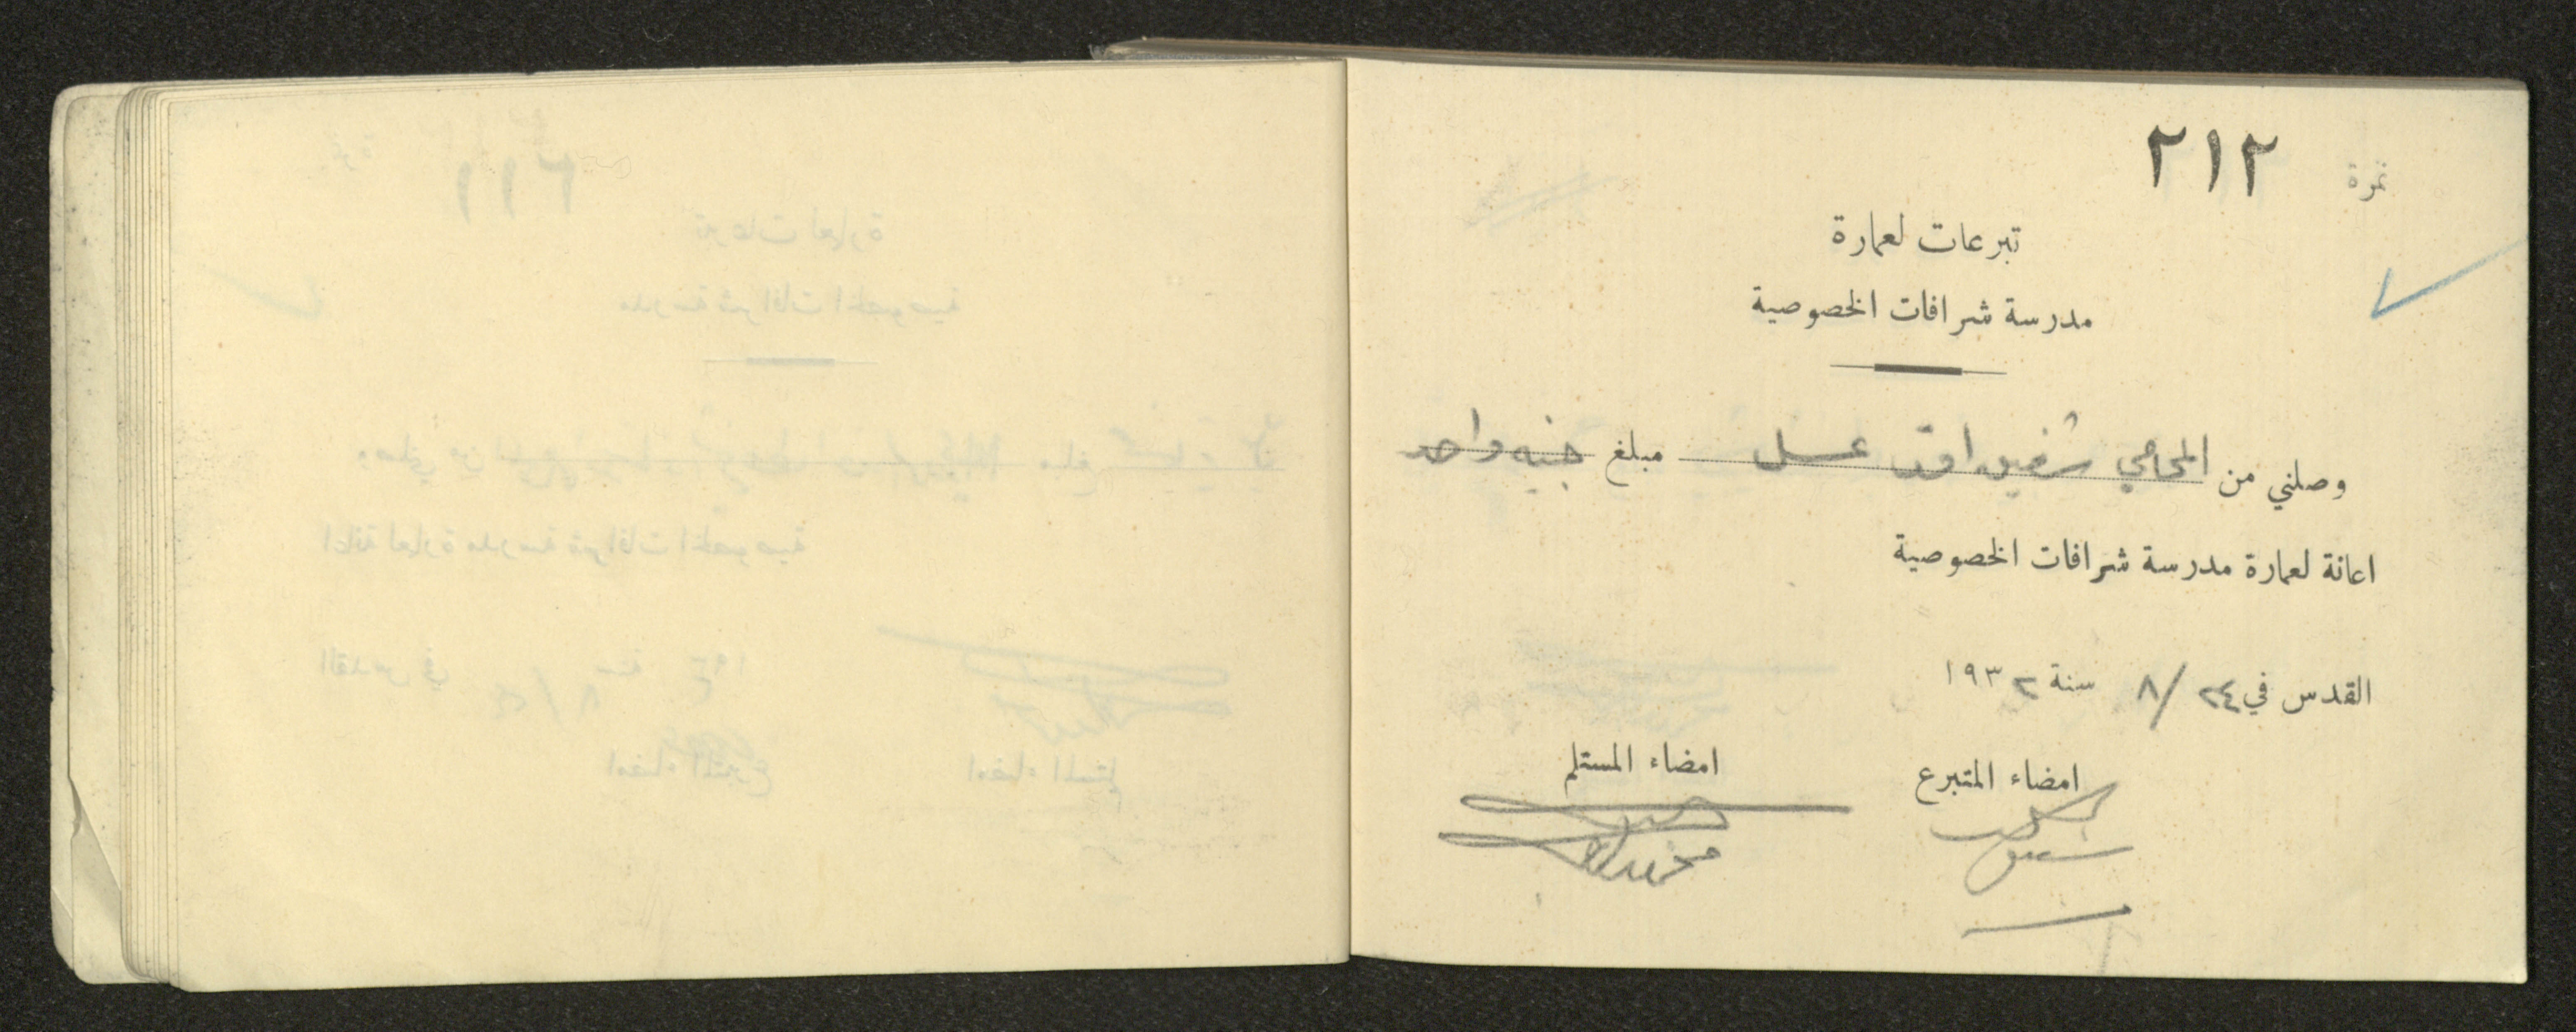 نمرة ٢١٢
تبرعات لعمارة
مدرسة شرافات الخصوصية
وصلني من المحامي شفيق افندي عسل مبلغ جنيه واحد
اعانة لعمارة مدرسة شرافات الخصوصية
القدس في ٢٤/ ٨ سنة ١٩٣٢
امضاء المتبرع امضاء المستلم